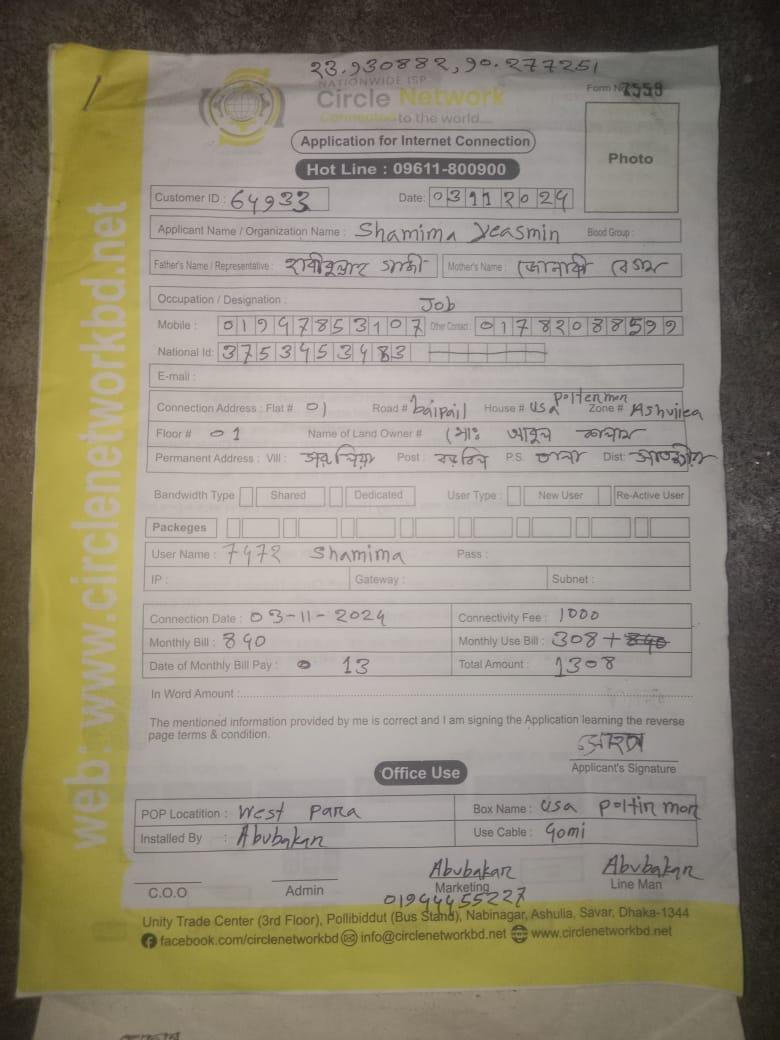 23.930882, 90.277251
NATIONWIDE ISP
Circle Network
Connected to the world....
Form No 7559
Application for Internet Connection
Photo
Hot Line : 09611-800900
Customer ID : 64933 Date: 03112024
Applicant Name / Organization Name : Shamima Yeasmin Blood Group :
Father's Name / Representative : Mother's Name :
Occupation / Designation : Job
Mobile : 01947853107 Other Contact : 01782088599
National Id: 3753453483
E-mail :
Connection Address : Flat # 01 Road # baipail House # usa poltenmon Zone # Ashuliea
Floor # 01 Name of Land Owner # মোঃ আবুল কালাম
Permanent Address : Vill : Post : P.S. Dist:
Bandwidth Type Shared Dedicated User Type : New User Re-Active User
Packeges
User Name : 7472 Shamima Pass :
IP : Gateway : Subnet :
Connection Date : 03-11-2024 Connectivity Fee : 1000
Monthly Bill : 840 Monthly Use Bill : 308 +
Date of Monthly Bill Pay : 13 Total Amount : 1308
In Word Amount :
The mentioned information provided by me is correct and I am signing the Application learning the reverse
page terms & condition.
Applicant's Signature
Office Use
POP Locatition : West Para Box Name : usa poltin mon
Installed By : Abubakar Use Cable : 90mi
Abubakar Abubakar
C.O.O Admin Marketing Line Man
01944455227
Unity Trade Center (3rd Floor), Pollibiddut (Bus Stand), Nabinagar, Ashulia, Savar, Dhaka-1344
facebook.com/circlenetworkbd info@circlenetworkbd.net www.circlenetworkbd.net
web: www.circlenetworkbd.net